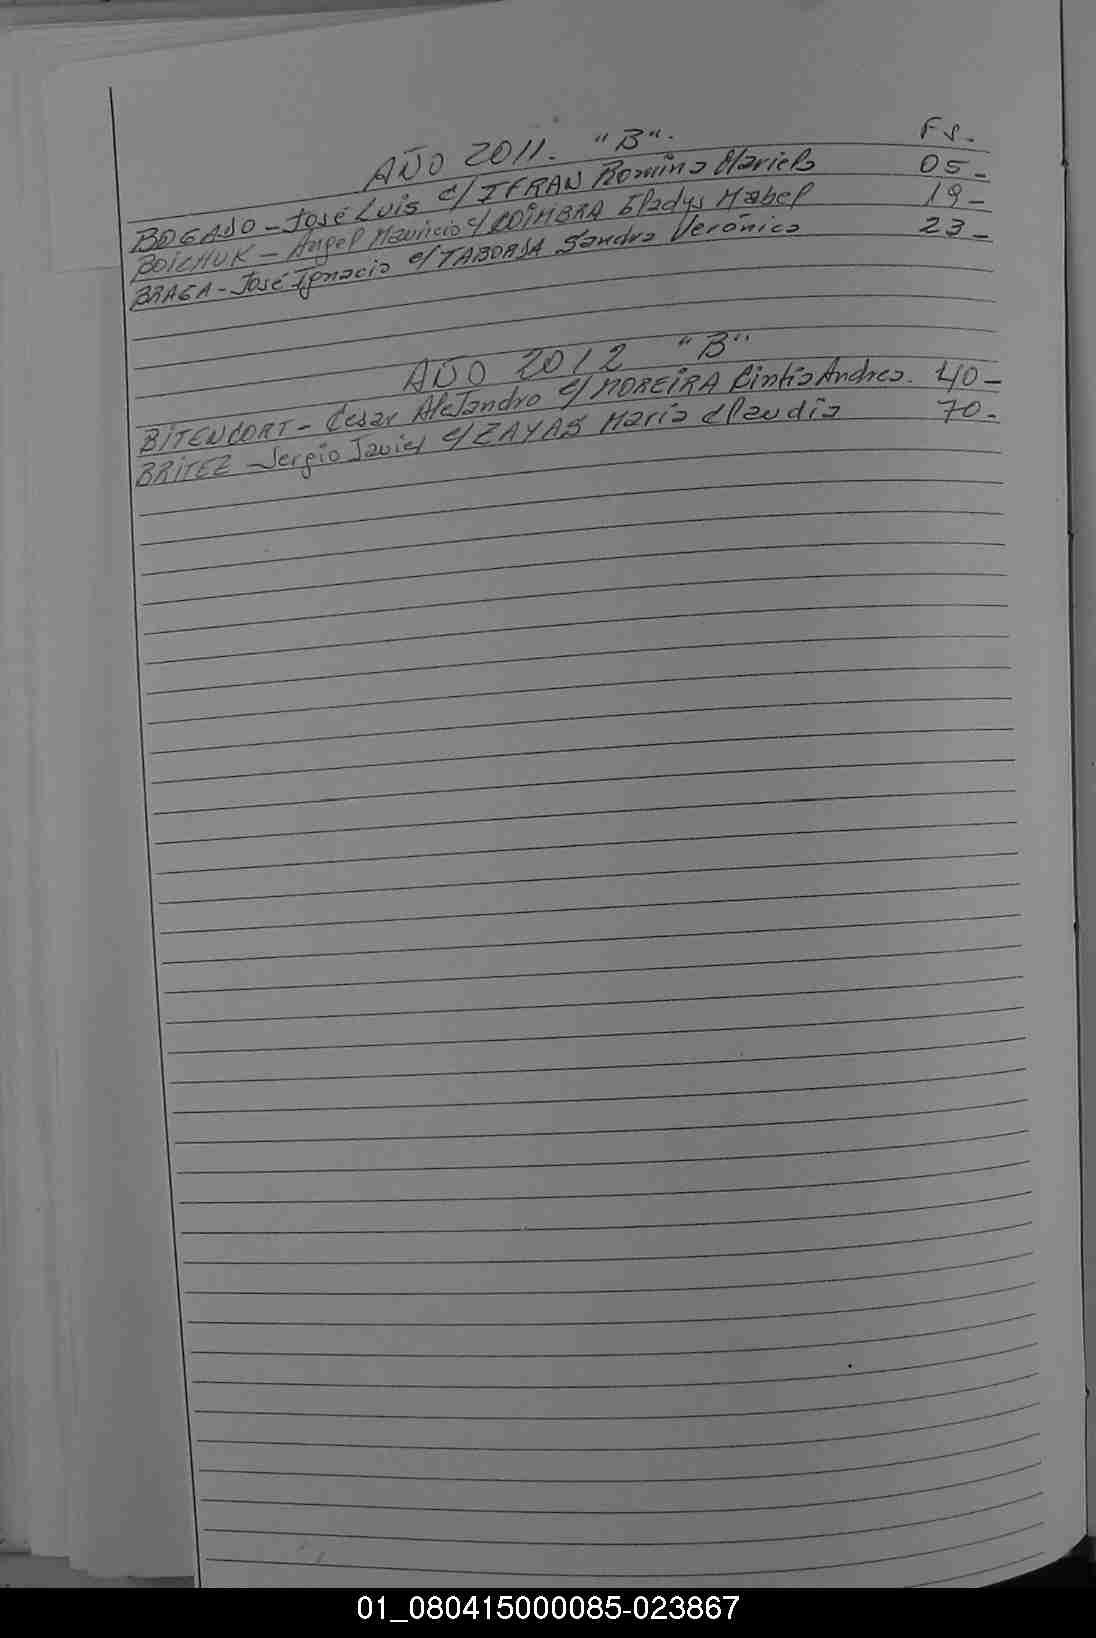 AÑO 2011. "B". Fs.
BOGADO - José Luis c/ IFRAN Romina Mariela 05-
BOICHUK - Angel Mauricio c/ COIMBRA Gladys Mabel 19-
BRAGA - José Ignacio c/ TABORDA Sandra Verónica 23-
AÑO 2012 "B"
BITENCORT - Cesar Alejandro c/ MOREIRA Cintia Andrea. 40-
BRITEZ - Sergio Javier c/ ZAYAS María Claudia 70-
01_080415000085-023867